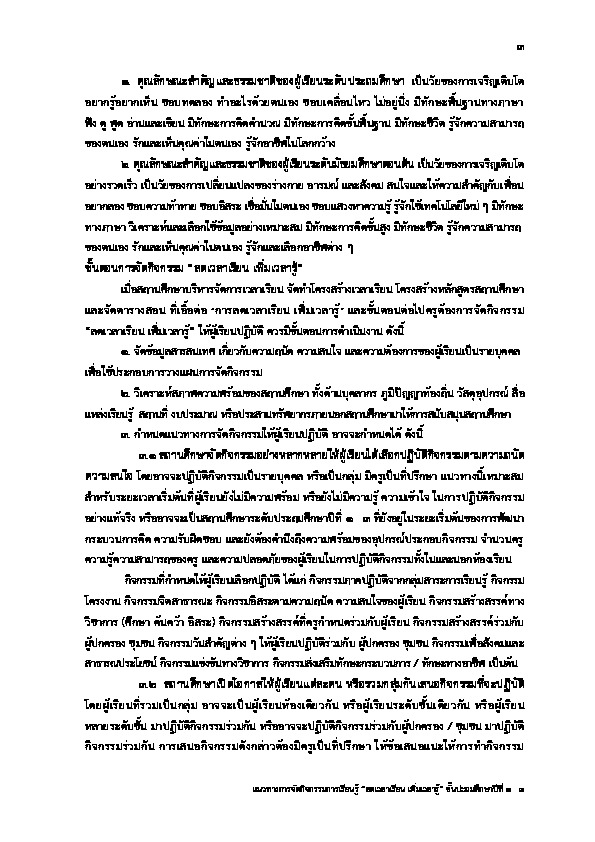 ๓
๑. คุณลักษณะสำคัญและธรรมชาติของผู้เรียนระดับประถมศึกษา เป็นวัยของการเจริญเติบโต
อยากรู้อยากเห็น ชอบทดลอง ทำอะไรด้วยตนเอง ชอบเคลื่อนไหว ไม่อยู่นิ่ง มีทักษะพื้นฐานทางภาษา
ฟัง ดู พูด อ่านและเขียน มีทักษะการคิดคำนวณ มีทักษะการคิดขั้นพื้นฐาน มีทักษะชีวิต รู้จักความสามารถ
ของตนเอง รักและเห็นคุณค่าในตนเอง รู้จักอาชีพในโลกกว้าง
๒. คุณลักษณะสำคัญและธรรมชาติของผู้เรียนระดับมัธยมศึกษาตอนต้น เป็นวัยของการเจริญเติบโต
อย่างรวดเร็ว เป็นวัยของการเปลี่ยนแปลงของร่างกาย อารมณ์ และสังคม สนใจและให้ความสำคัญกับเพื่อน
อยากลอง ชอบความท้าทาย ชอบอิสระ เชื่อมั่นในตนเอง ชอบแสวงหาความรู้ รู้จักใช้เทคโนโลยีใหม่ ๆ มีทักษะ
ทางภาษา วิเคราะห์และเลือกใช้ข้อมูลอย่างเหมาะสม มีทักษะการคิดขั้นสูง มีทักษะชีวิต รู้จักความสามารถ
ของตนเอง รักและเห็นคุณค่าในตนเอง รู้จักและเลือกอาชีพต่าง ๆ
ขั้นตอนการจัดกิจกรรม “ลดเวลาเรียน เพิ่มเวลารู้”
เมื่อสถานศึกษาบริหารจัดการเวลาเรียน จัดทำโครงสร้างเวลาเรียน โครงสร้างหลักสูตรสถานศึกษา
และจัดตารางสอน ที่เอื้อต่อ “การลดเวลาเรียน เพิ่มเวลารู้” และขั้นตอนต่อไปครูต้องการจัดกิจกรรม
“ลดเวลาเรียน เพิ่มเวลารู้” ให้ผู้เรียนปฏิบัติ ควรมีขั้นตอนการดำเนินงาน ดังนี้
๑. จัดข้อมูลสารสนเทศ เกี่ยวกับความถนัด ความสนใจ และความต้องการของผู้เรียนเป็นรายบุคคล
เพื่อใช้ประกอบการวางแผนการจัดกิจกรรม
๒. วิเคราะห์สภาพความพร้อมของสถานศึกษา ทั้งด้านบุคลากร ภูมิปัญญาท้องถิ่น วัสดุอุปกรณ์ สื่อ
แหล่งเรียนรู้ สถานที่ งบประมาณ หรือประสานทรัพยากรภายนอกสถานศึกษามาให้การสนับสนุนสถานศึกษา
๓. กำหนดแนวทางการจัดกิจกรรมให้ผู้เรียนปฏิบัติ อาจจะกำหนดได้ ดังนี้
๓.๑ สถานศึกษาจัดกิจกรรมอย่างหลากหลายให้ผู้เรียนได้เลือกปฏิบัติกิจกรรมตามความถนัด
ความสนใจ โดยอาจจะปฏิบัติกิจกรรมเป็นรายบุคคล หรือเป็นกลุ่ม มีครูเป็นที่ปรึกษา แนวทางนี้เหมาะสม
สำหรับระยะเวลาเริ่มต้นที่ผู้เรียนยังไม่มีความพร้อม หรือยังไม่มีความรู้ ความเข้าใจ ในการปฏิบัติกิจกรรม
อย่างแท้จริง หรืออาจจะเป็นสถานศึกษาระดับประถมศึกษาปีที่ ๑ ๓ ที่ยังอยู่ในระยะเริ่มต้นของการพัฒนา
กระบวนการคิด ความรับผิดชอบ และยังต้องคำนึงถึงความพร้อมของอุปกรณ์ประกอบกิจกรรม จำนวนครู
ความรู้ความสามารถของครู และความปลอดภัยของผู้เรียนในการปฏิบัติกิจกรรมทั้งในและนอกห้องเรียน
กิจกรรมที่กำหนดให้ผู้เรียนเลือกปฏิบัติ ได้แก่ กิจกรรมภาคปฏิบัติจากกลุ่มสาระการเรียนรู้ กิจกรรม
โครงงาน กิจกรรมจิตสาธารณะ กิจกรรมอิสระตามความถนัด ความสนใจของผู้เรียน กิจกรรมสร้างสรรค์ทาง
วิชาการ (ศึกษา ค้นคว้า อิสระ) กิจกรรมสร้างสรรค์ที่ครูกำหนดร่วมกับผู้เรียน กิจกรรมสร้างสรรค์ร่วมกับ
ผู้ปกครอง ชุมชน กิจกรรมวันสำคัญต่าง ๆ ให้ผู้เรียนปฏิบัติร่วมกับ ผู้ปกครอง ชุมชน กิจกรรมเพื่อสังคมและ
สาธารณประโยชน์ กิจกรรมแข่งขันทางวิชาการ กิจกรรมส่งเสริมทักษะกระบวนการ / ทักษะทางอาชีพ เป็นต้น
๓.๒ สถานศึกษาเปิดโอกาสให้ผู้เรียนแต่ละคน หรือรวมกลุ่มกันเสนอกิจกรรมที่จะปฏิบัติ
โดยผู้เรียนที่รวมเป็นกลุ่ม อาจจะเป็นผู้เรียนห้องเดียวกัน หรือผู้เรียนระดับชั้นเดียวกัน หรือผู้เรียน
หลายระดับชั้น มาปฏิบัติกิจกรรมร่วมกัน หรืออาจจะปฏิบัติกิจกรรมร่วมกับผู้ปกครอง / ชุมชน มาปฏิบัติ
กิจกรรมร่วมกัน การเสนอกิจกรรมดังกล่าวต้องมีครูเป็นที่ปรึกษา ให้ข้อเสนอแนะให้การทำกิจกรรม
แนวทางการจัดกิจกรรมการเรียนรู้ “ลดเวลาเรียน เพิ่มเวลารู้” ชั้นประถมศึกษาปีที่ ๑ ๓